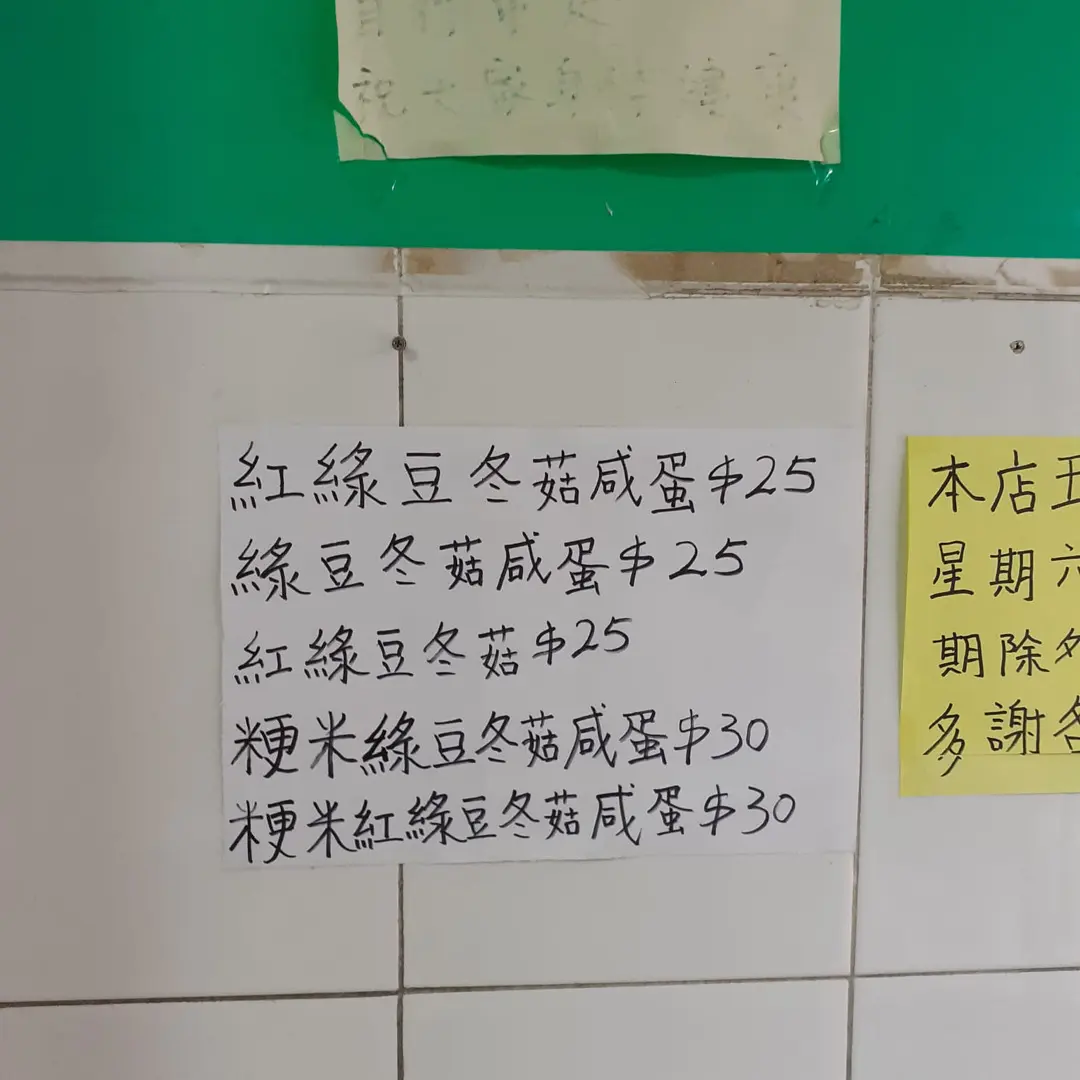 祝大家身體健康
紅綠豆冬菇咸蛋$25
綠豆冬菇咸蛋$25
紅綠豆冬菇$25
粳米綠豆冬菇咸蛋$30
粳米紅綠豆冬菇咸蛋$30
本店五
星期六
期除外
多謝各